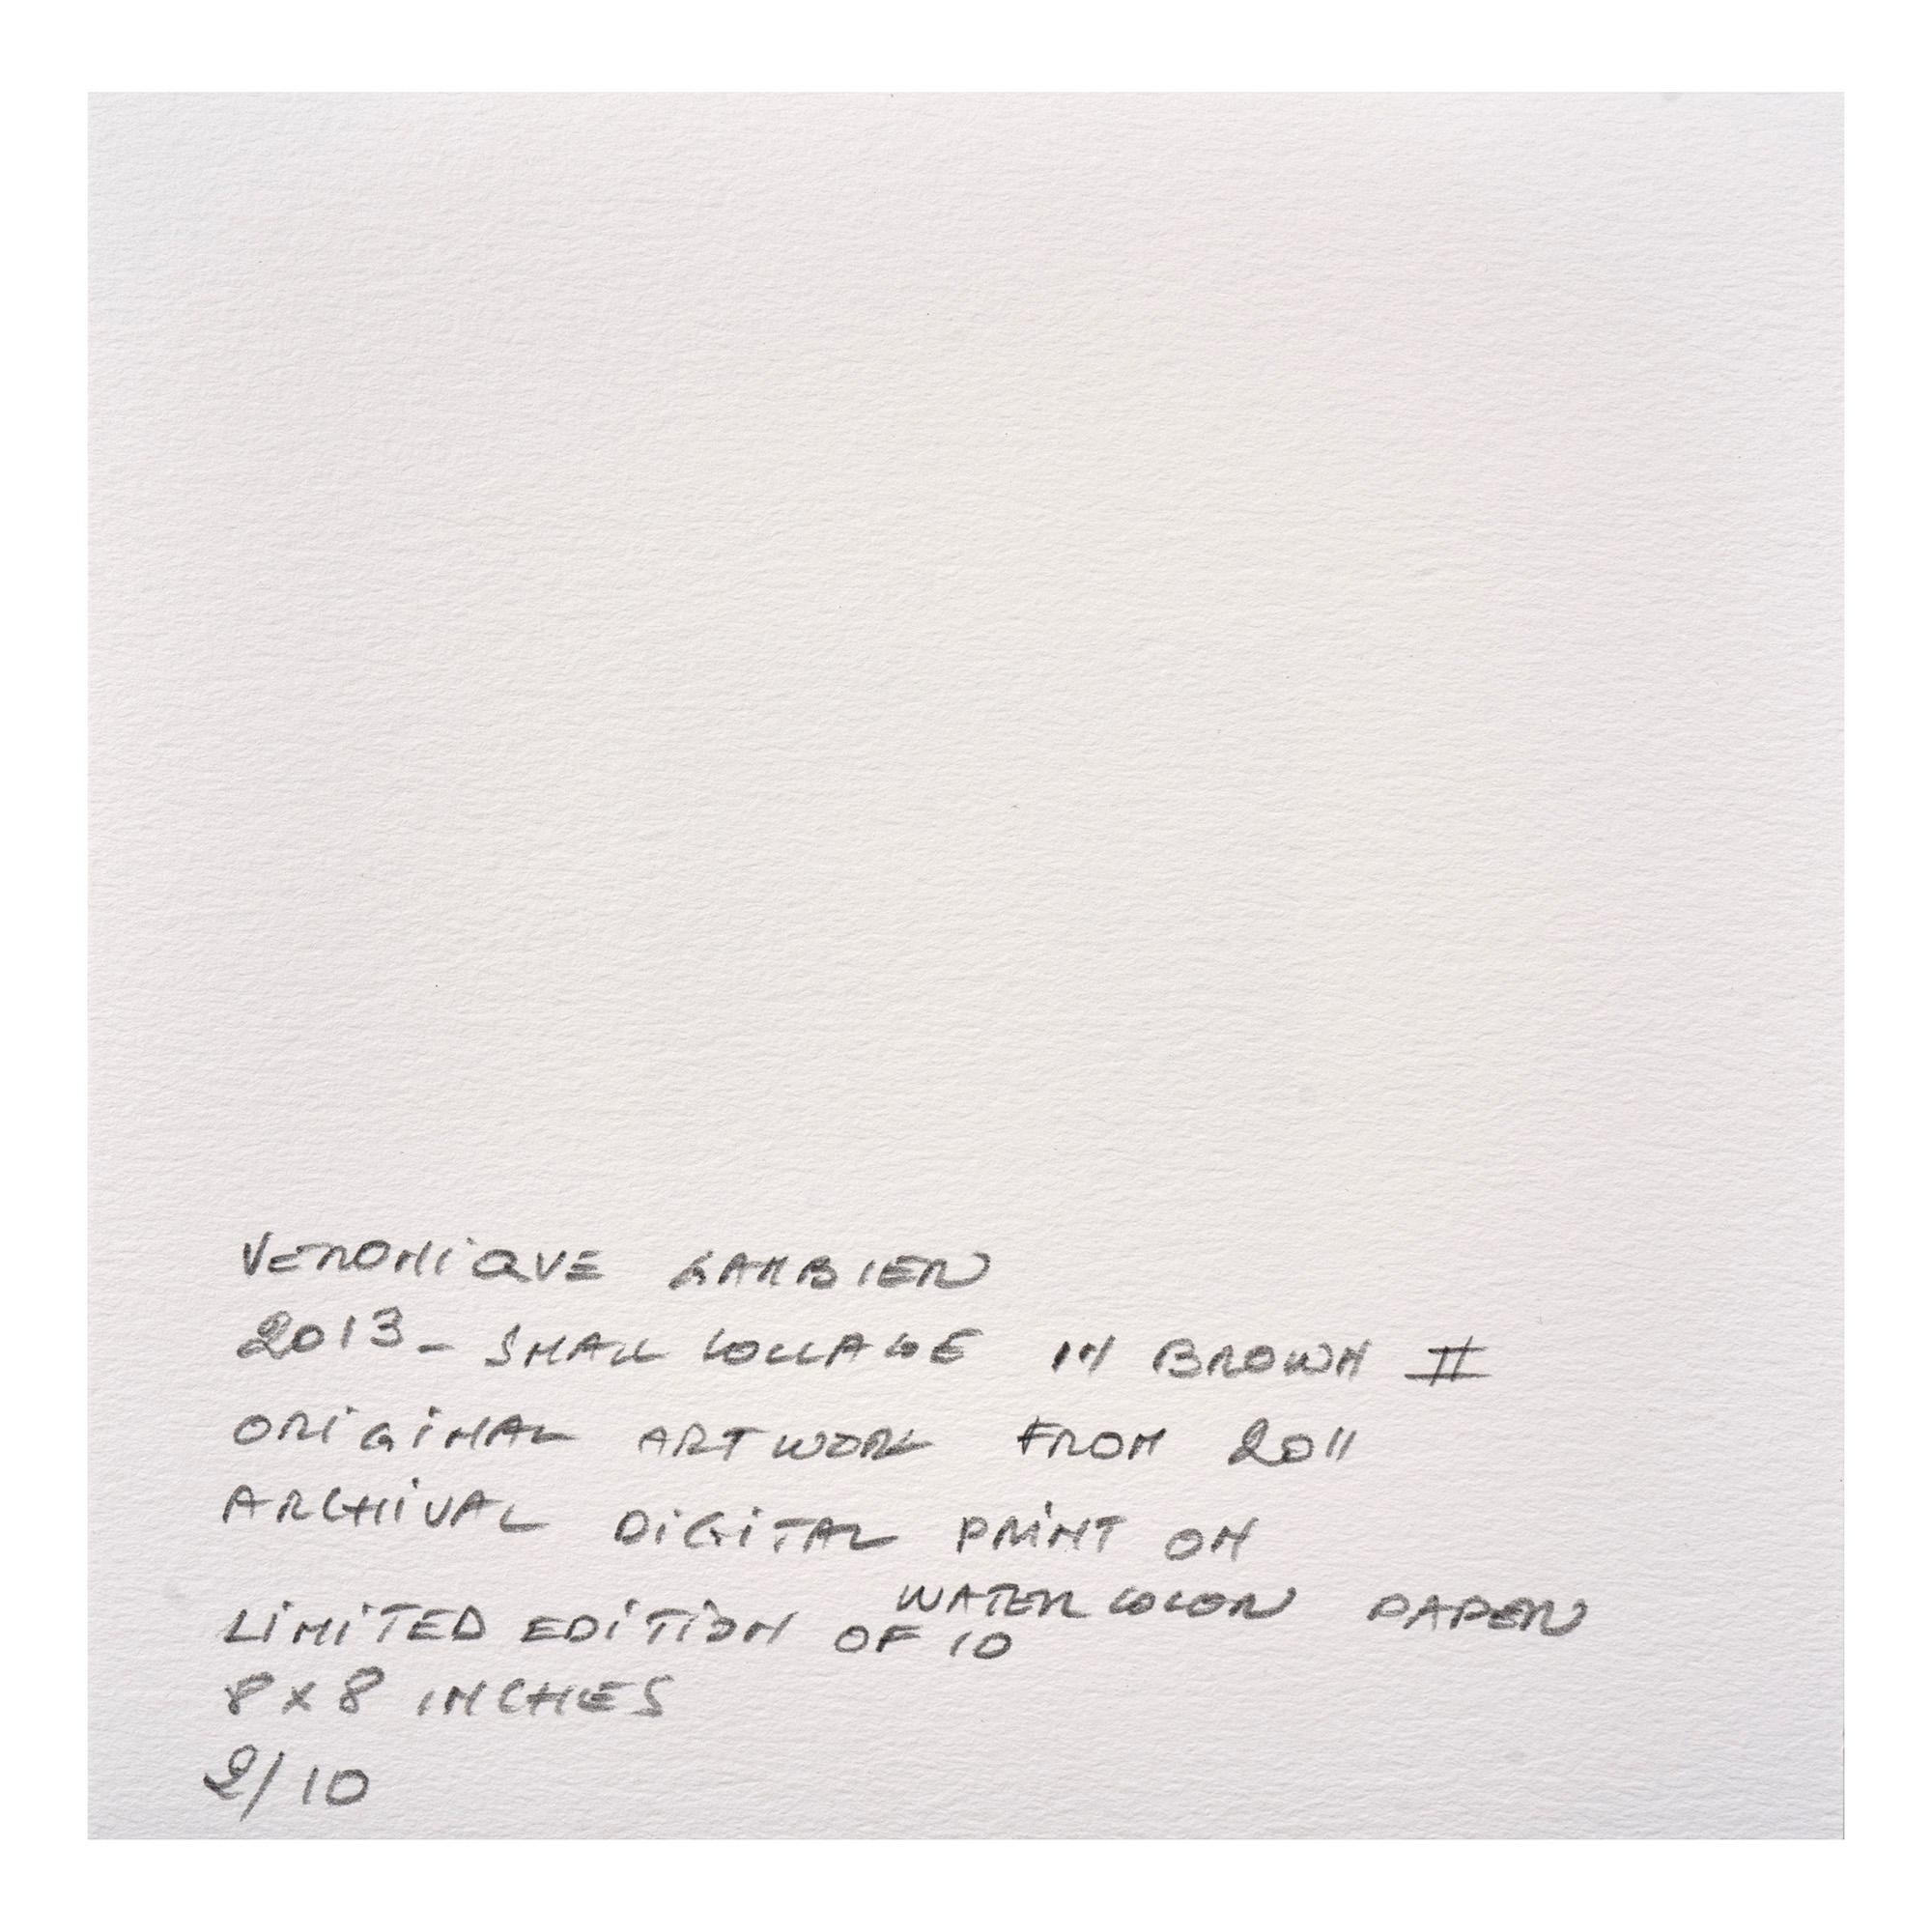 VERONIQUE GAMBIER
2013 - SMALL COLLAGE IN BROWN II
ORIGINAL ARTWORK FROM 2011
ARCHIVAL DIGITAL PRINT ON
WATER COLOR PAPER
LIMITED EDITION OF 10
8 x 8 INCHES
2/10